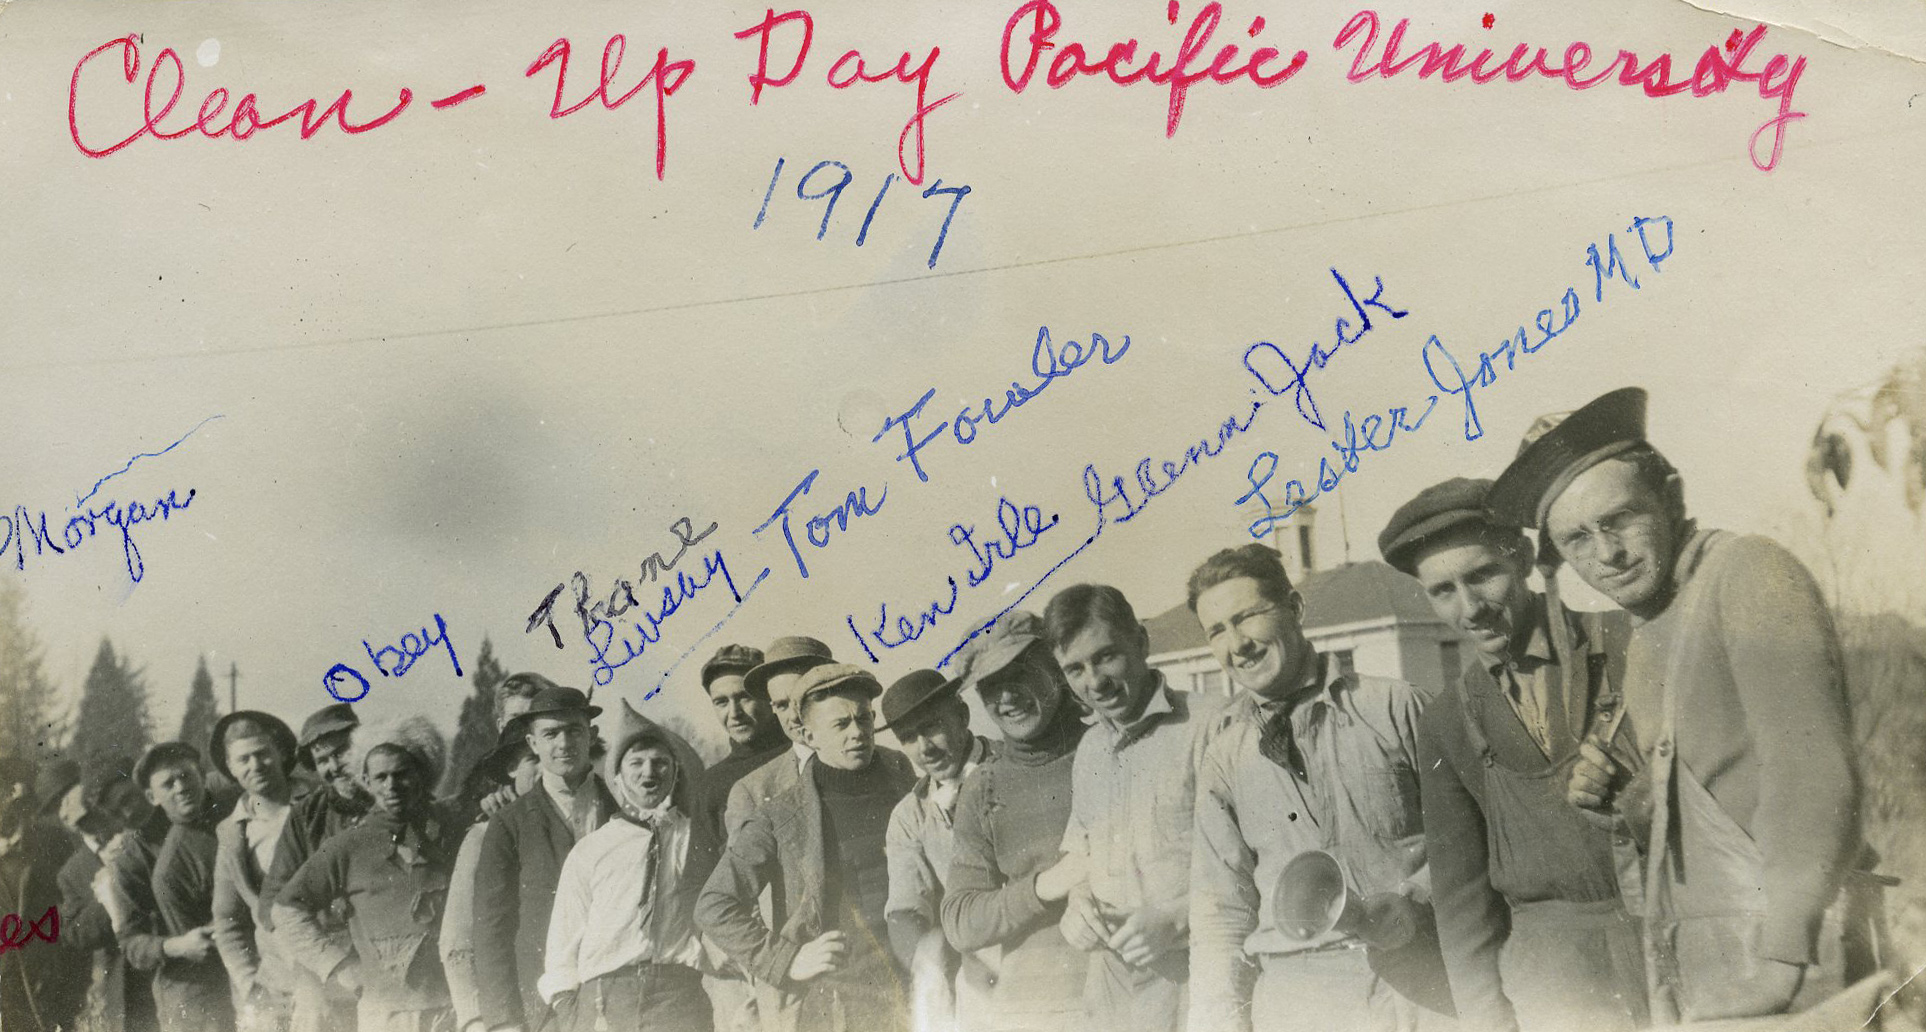 Clean-Up Day Pacific University
1917
Morgan
Obey
Thane
Livesay - Tom Fowler
Ken Irle
Glenn Jack
Lester Jones MD
es